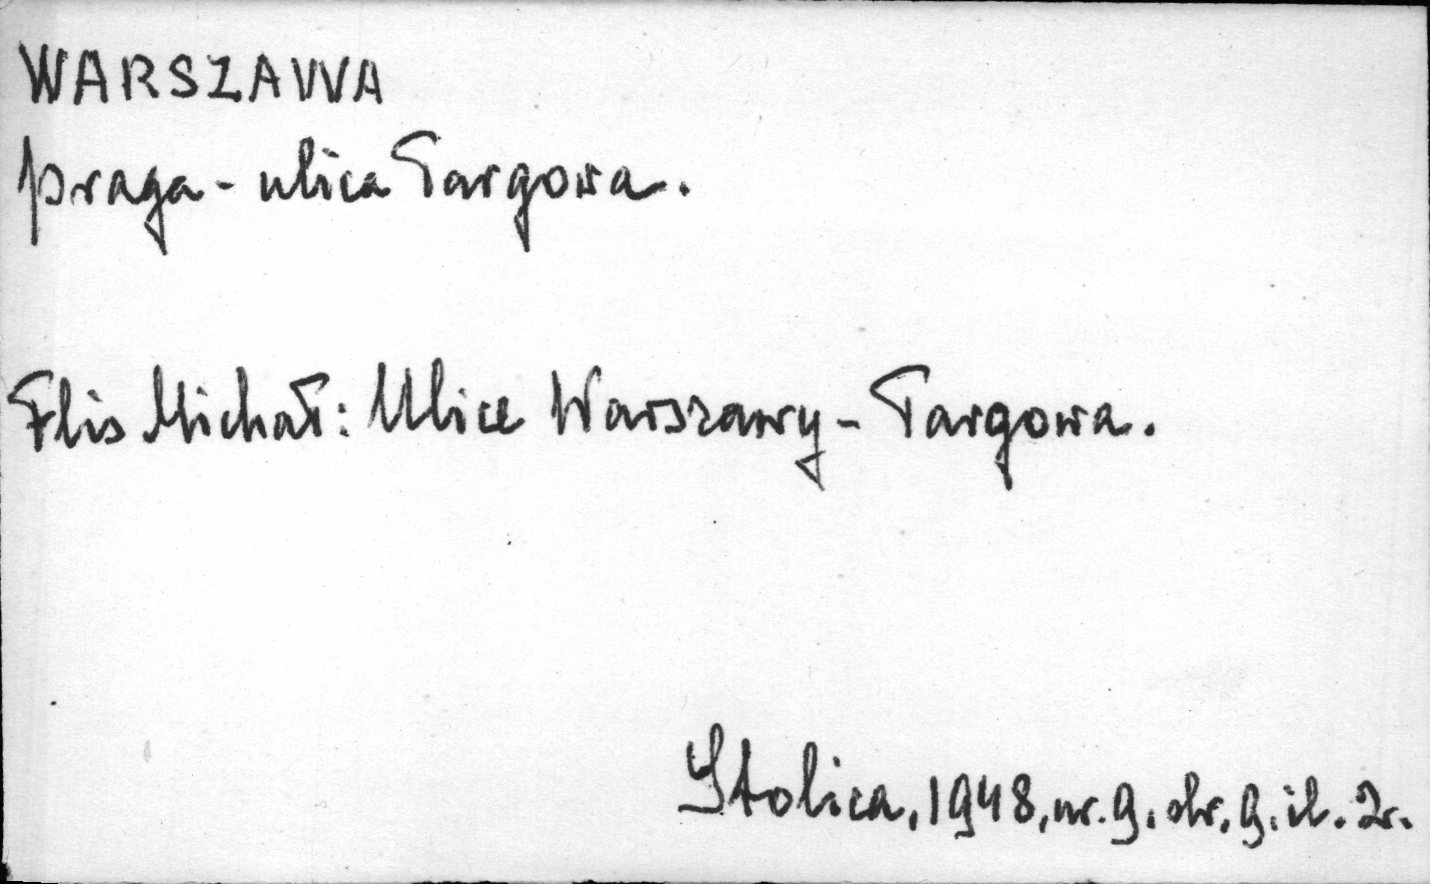 WARSZAWA
praga - ulica Targowa.
Flis Michał: Ulice Warszawy - Targowa.
Stolica, 1948, nr. 9. str. 9. il. 2.